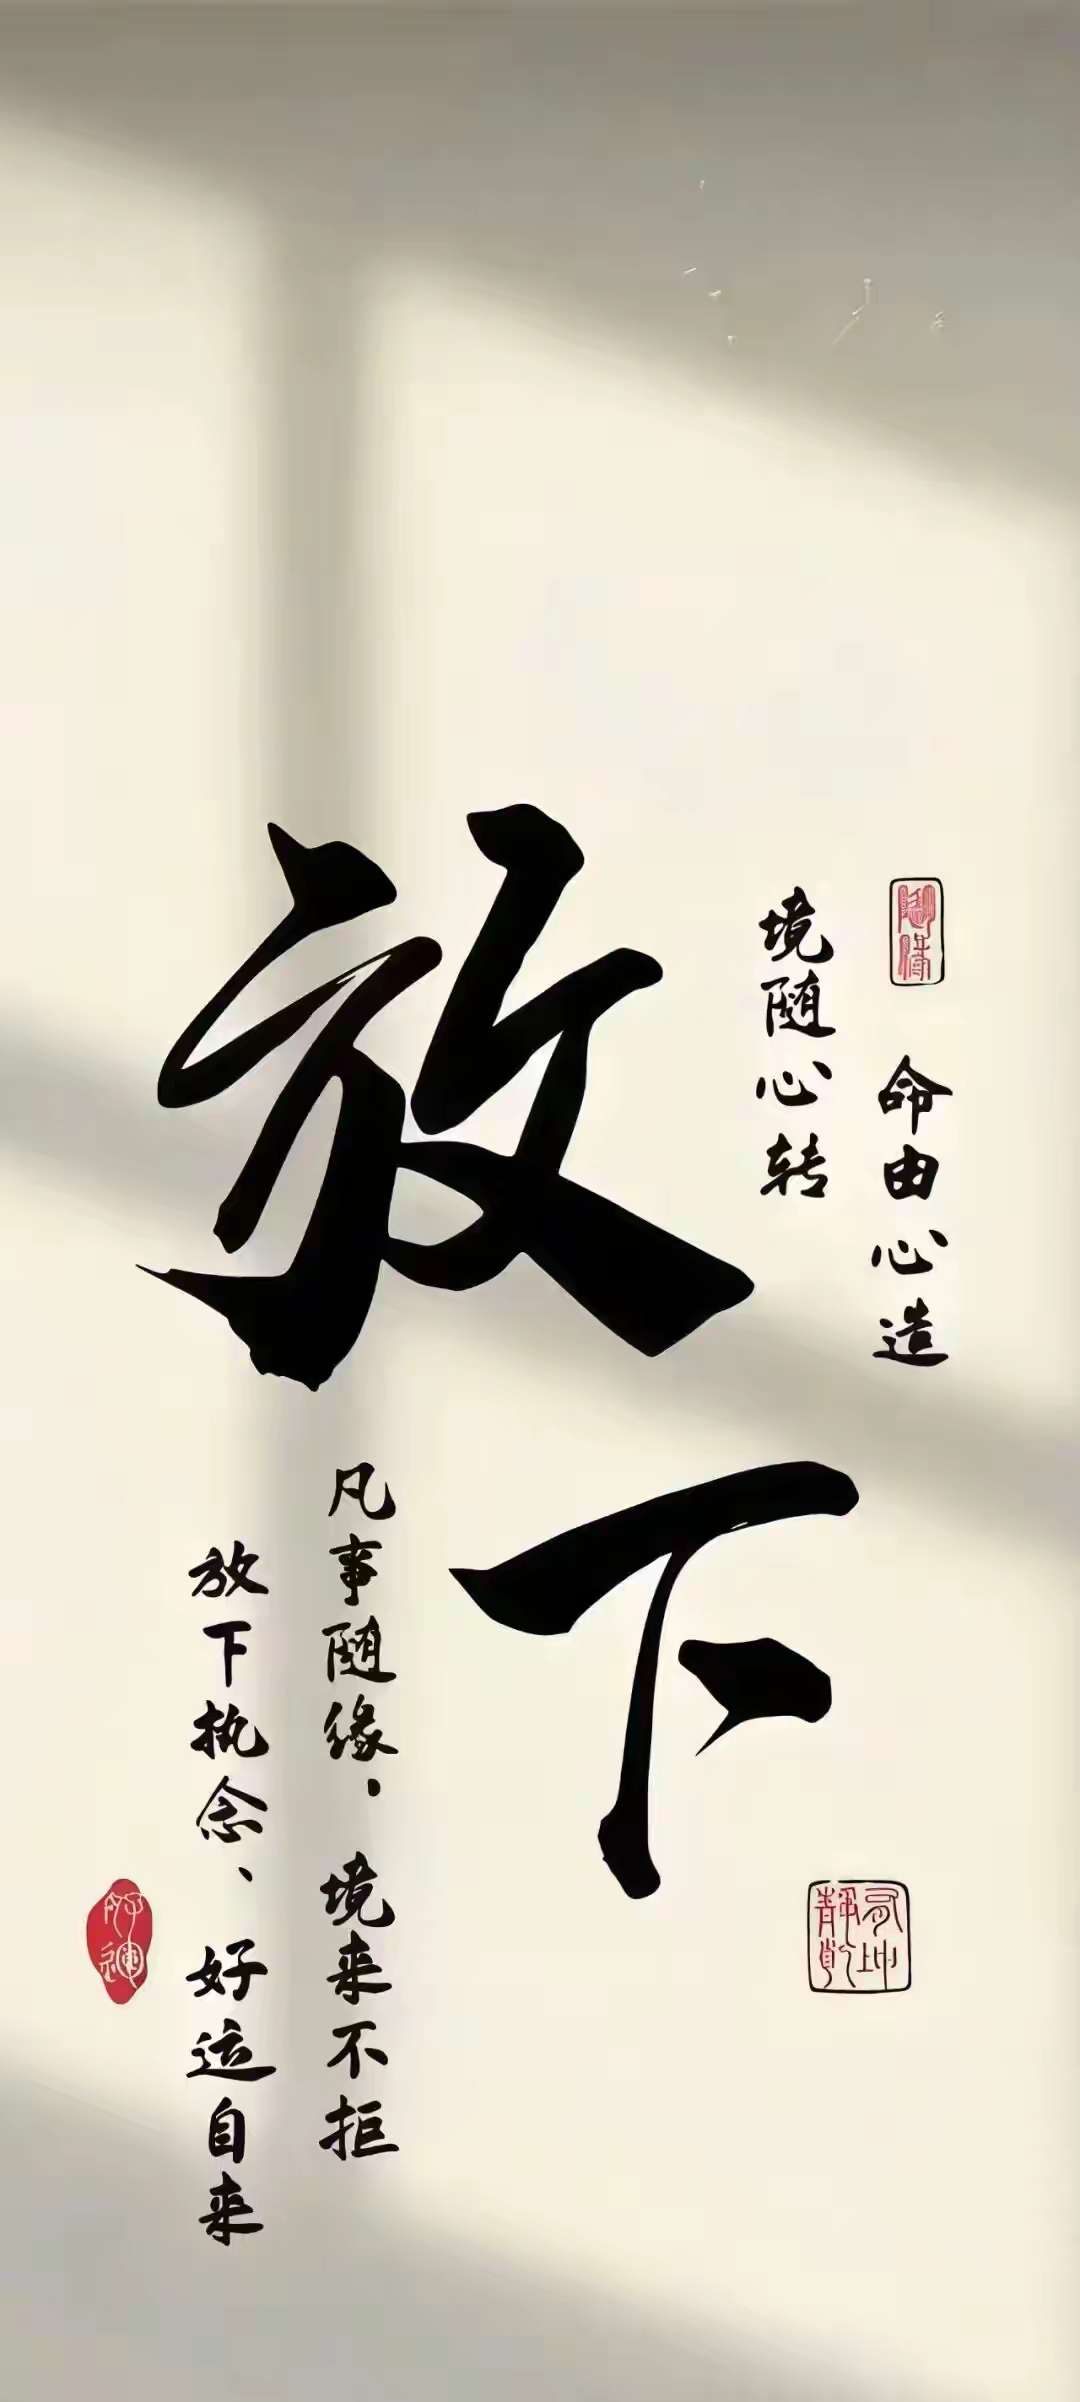 命由心造
境随心转
放下
凡事随缘、境来不拒
放下执念、好运自来
好運